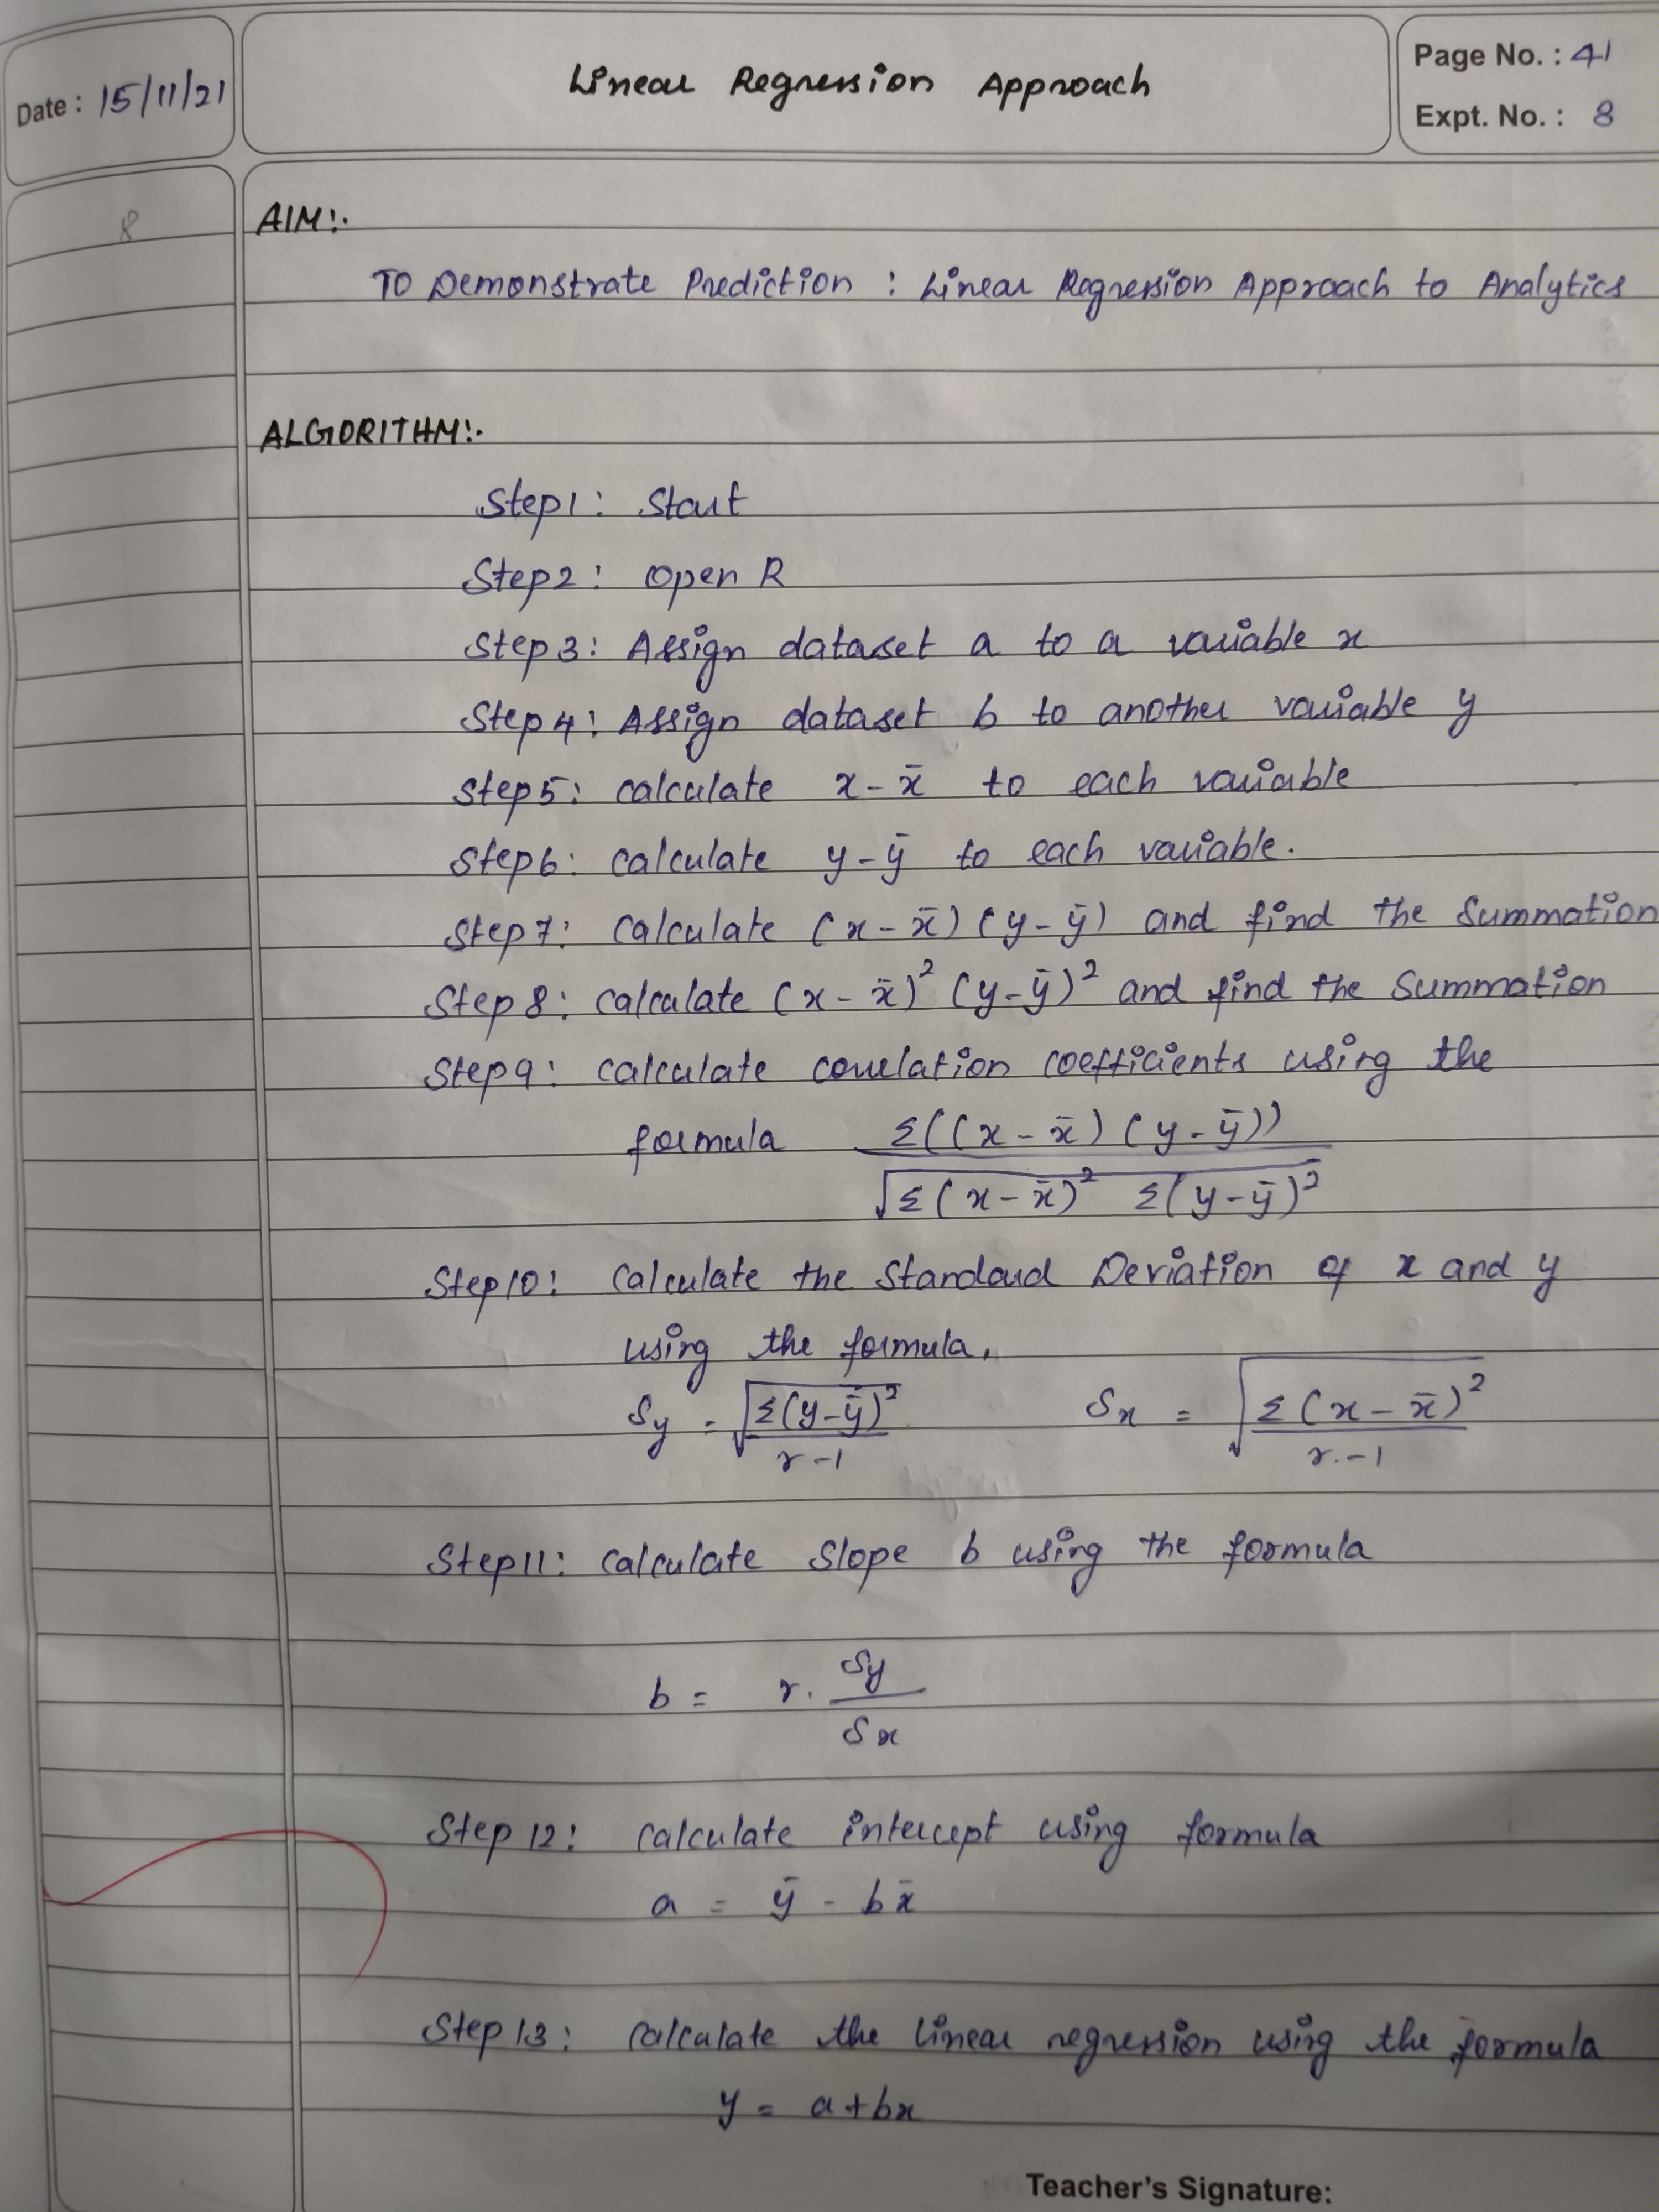 Date : 15/11/21
Linear Regression Approach
Page No. : 41
Expt. No. : 8
8
AIM:.
To Demonstrate Prediction : Linear Regression Approach to Analytics
ALGORITHM:.
Step1: Start
Step2: Open R
Step3: Assign dataset a to a variable x
Step4: Assign dataset b to another variable y
Step5: calculate x - x̄ to each variable
Step6: calculate y - ȳ to each variable.
Step7: calculate (x - x̄) (y - ȳ) and find the Summation
Step8: calculate (x - x̄)² (y - ȳ)² and find the Summation
Step9: calculate correlation coefficients using the
formula Σ((x - x̄) (y - ȳ)) / √Σ(x - x̄)² Σ(y - ȳ)²
Step10: calculate the Standard Deviation of x and y
using the formula,
Sy = √Σ(y - ȳ)² / r - 1 Sx = √Σ(x - x̄)² / r. - 1
Step11: calculate Slope b using the formula
b = r. Sy / Sx
Step 12: calculate intercept using formula
a = ȳ - bx̄
Step 13: calculate the linear regression using the formula
y = a + bx
Teacher's Signature: